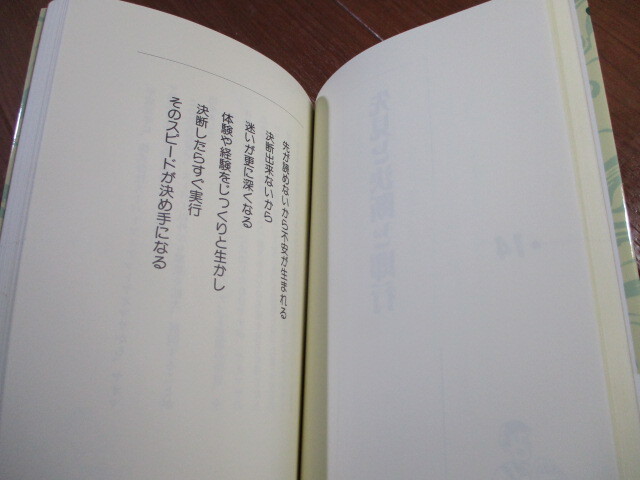 先が読めないから不安が生まれる
決断出来ないから
迷いが更に深くなる
体験や経験をじっくりと生かし
決断したらすぐ実行
そのスピードが決め手になる